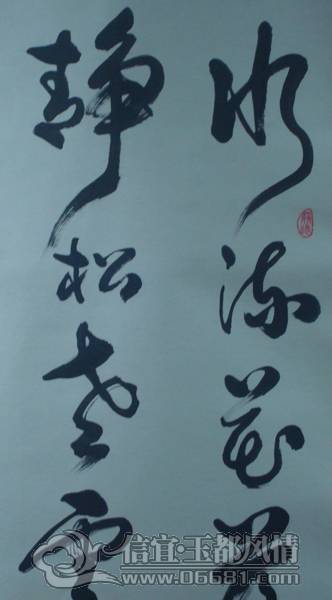 水流花開
静松老雲
信宜·玉都风情
www.06681.com